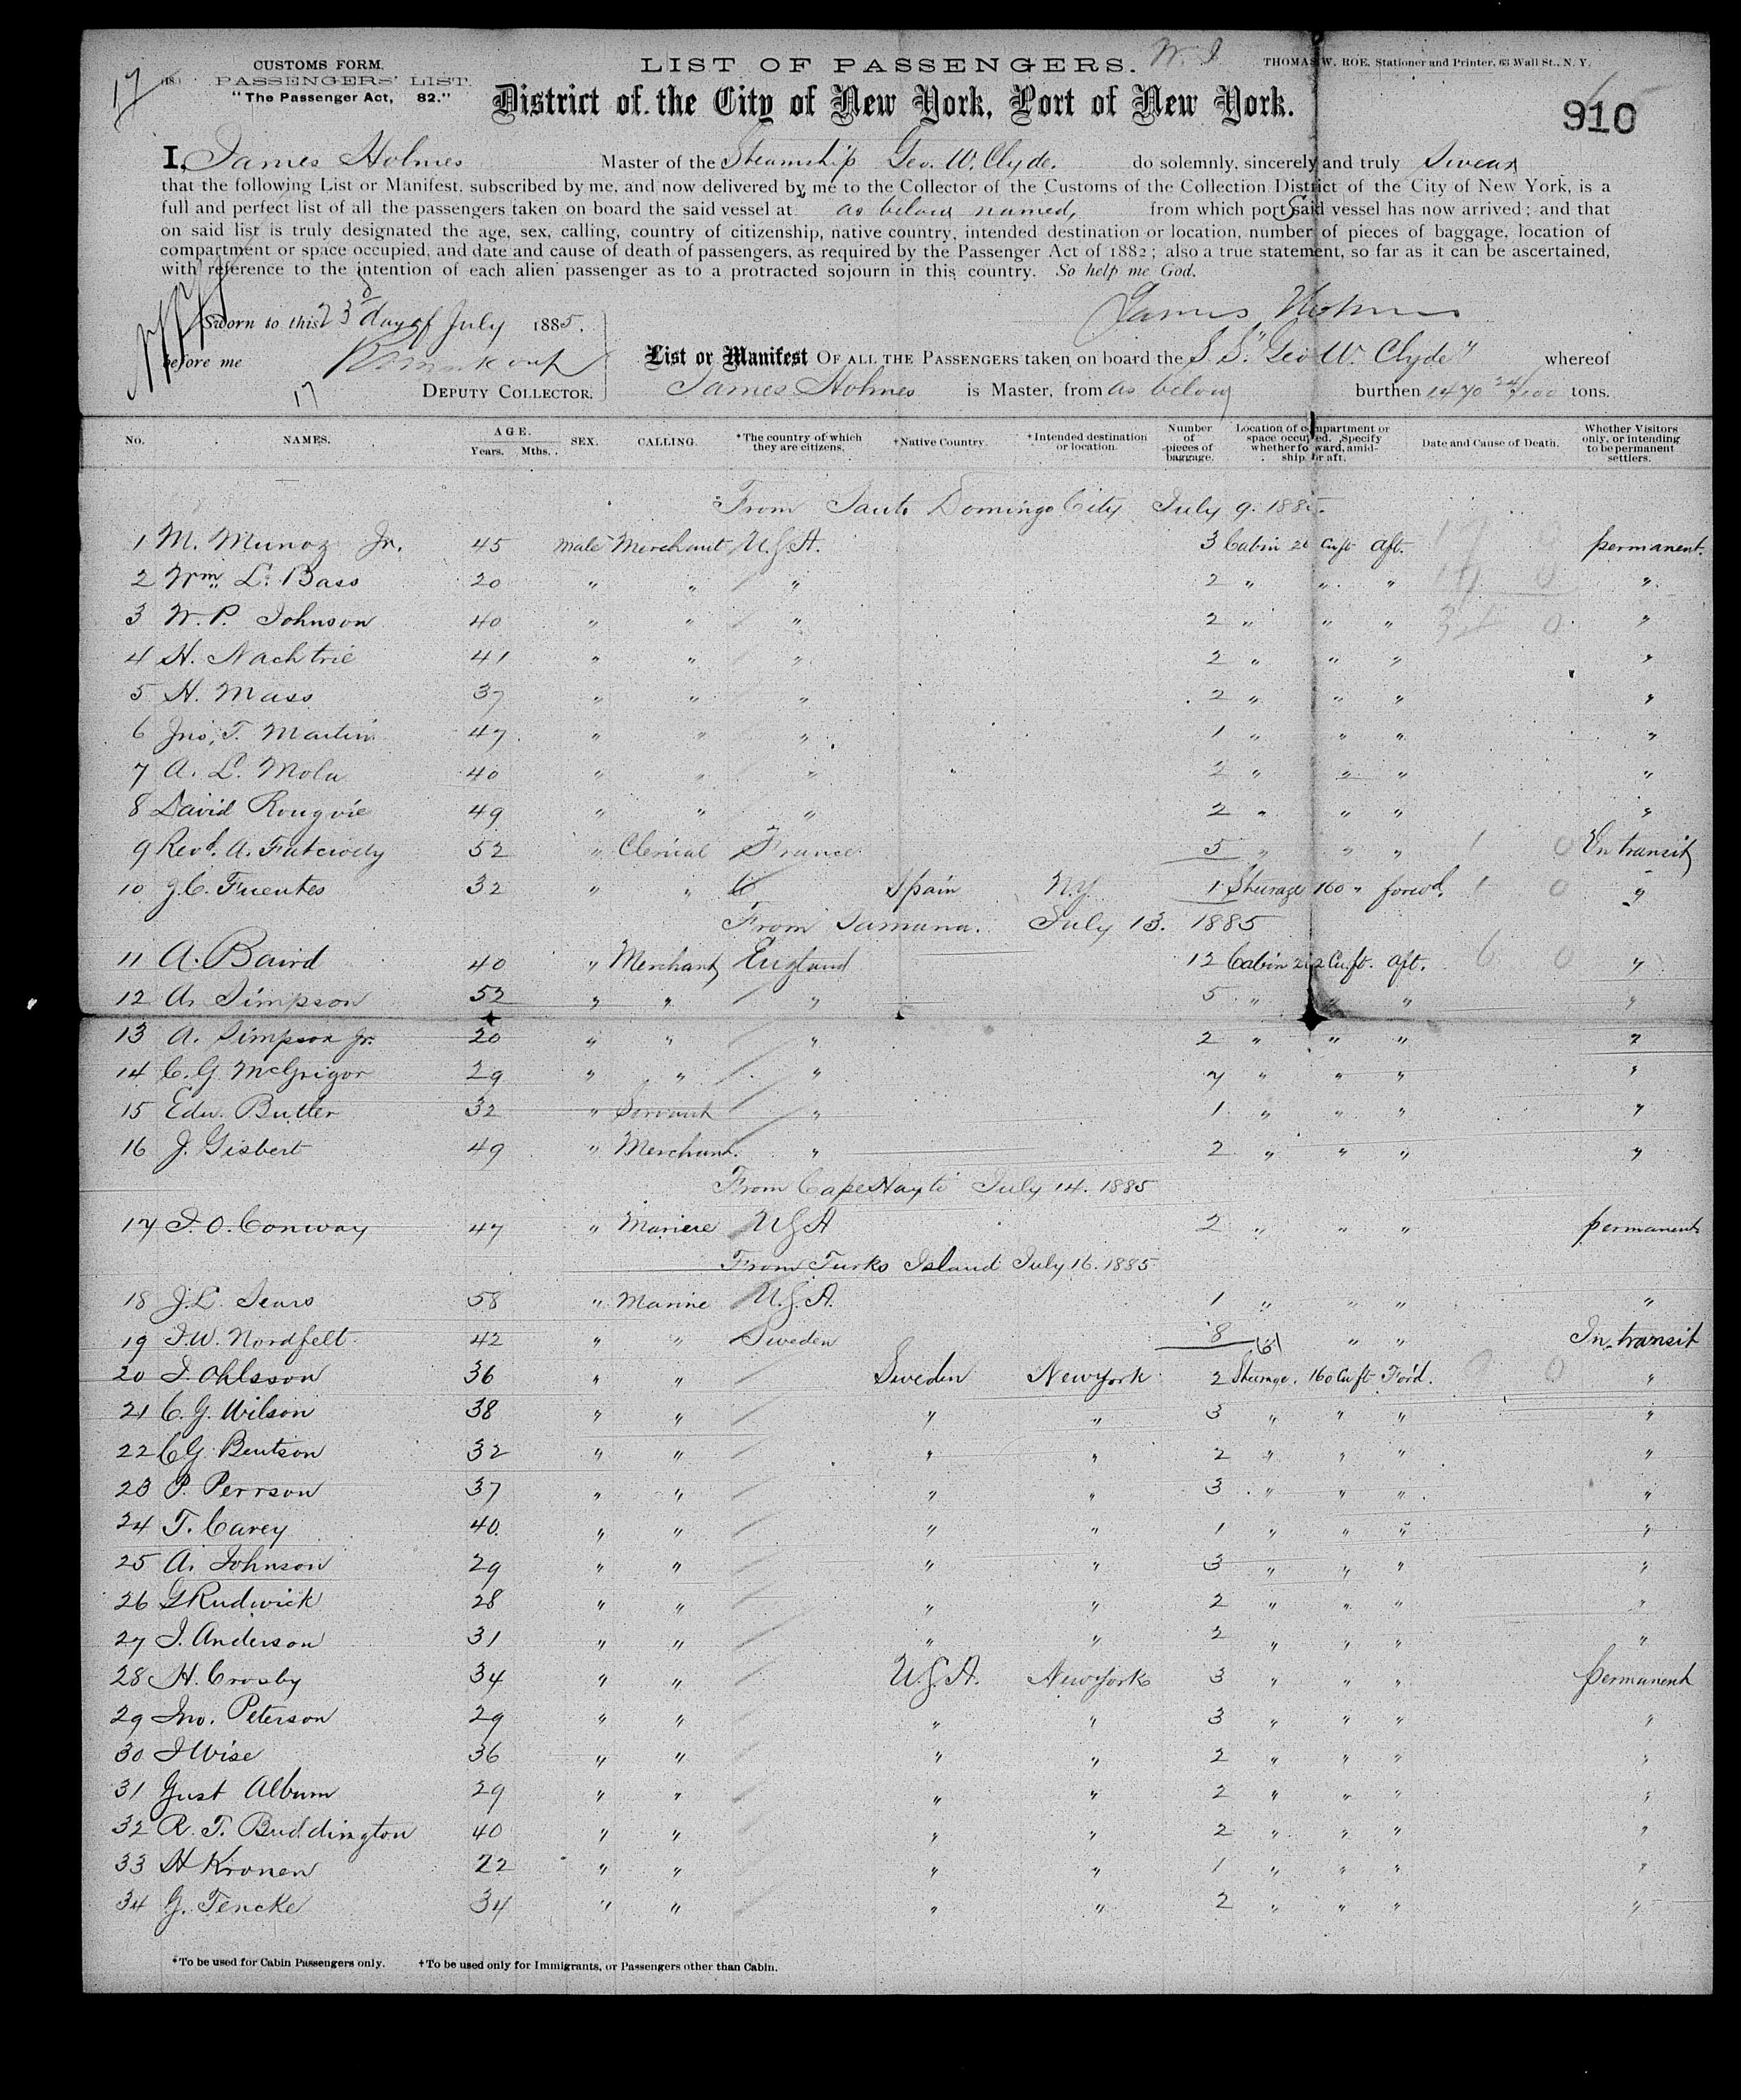 17
CUSTOMS FORM.
PASSENGERS' LIST.
"The Passenger Act, 82."
LIST OF PASSENGERS.
W. I
THOMAS W. ROE, Stationer and Printer, 63 Wall St., N. Y.
District of the City of New York, Port of New York.
910
I, James Holmes Master of the Steamship Geo. W. Clyde. do solemnly, sincerely and truly Swear
that the following List or Manifest, subscribed by me, and now delivered by me to the Collector of the Customs of the Collection District of the City of New York, is a
full and perfect list of all the passengers taken on board the said vessel at as below named, from which port Said vessel has now arrived; and that
on said list is truly designated the age, sex, calling, country of citizenship, native country, intended destination or location, number of pieces of baggage, location of
compartment or space occupied, and date and cause of death of passengers, as required by the Passenger Act of 1882; also a true statement, so far as it can be ascertained,
with reference to the intention of each alien passenger as to a protracted sojourn in this country. So help me God.
James Holmes
Sworn to this 23d day of July 1885.
before me
DEPUTY COLLECTOR.
17
List or Manifest OF ALL THE PASSENGERS taken on board the S. S. "Geo W. Clyde" whereof
James Holmes is Master, from as below burthen 1470 24/100 tons.
No. NAMES. AGE. Years. Mths. SEX. CALLING. *The country of which they are citizens. †Native Country. †Intended destination or location. Number of pieces of baggage. Location of compartment or space occupied. Specify whether forward, amidship or aft. Date and Cause of Death. Whether Visitors only, or intending to be permanent settlers.
From Santo Domingo City July 9. 1885.
1 M. Munoz Jr. 45 Male Merchant U.S.A. 3 Cabin 26 Cuft aft. permanent.
2 Wm. L. Bass 20 " " " 2 " " " "
3 W. P. Johnson 40 " " " 2 " " " "
4 H. Nachtrie 41 " " " 2 " " " "
5 H. Mass 37 " " " 2 " " " "
6 Jno. T. Martin 47 " " " 1 " " " "
7 A. L. Mola 40 " " " 2 " " " "
8 David Rougvie 49 " " " 2 " " " "
9 Revd. A. 52 " Clerical France 5 " " " 1 0 In transit
10 J. C. Fuentes 32 " " Spain N.Y. 1 Steerage 160 " forwd. 1 0 "
From Samana. July 13. 1885
11 A. Baird 40 " Merchant England 12 Cabin 212 Cu.ft. aft. 6 0 "
12 A. Simpson 52 " " " 5 " " " "
13 A. Simpson Jr. 20 " " " 2 " " " "
14 C. G McGrigor 29 " " " 7 " " " "
15 Edw. Butler 32 " Servant " 1 " " " "
16 J. Gisbert 49 " Merchant. " 2 " " " "
From Cape Hayti July 14. 1885
17 J. O. Conway 47 " Marine U.S.A 2 " " " permanent
From Turks Island July 16. 1885
18 J. L. Sears 58 " Marine U.S.A. 1 " " " "
19 J. W. Nordfelt 42 " " Sweden 8 " " In transit
20 J. Ohlsson 36 " " Sweden New York 2 Steerage. 160 Cuft Fo'd. "
21 C. G. Wilson 38 " " " " 3 " " " "
22 C G. Bentson 32 " " " " 2 " " " "
23 P. Perrson 37 " " " " 3 " " " "
24 T. Carey 40. " " " " 1 " " " "
25 A. Johnson 29 " " " " 3 " " " "
26 G Rudwick 28 " " " " 2 " " " "
27 J. Anderson 31 " " " " 2 " " " "
28 H. Crosby 34 " " U.S.A. New York 3 " " " permanent
29 Jno. Peterson 29 " " " " 3 " " " "
30 J Wise 36 " " " " 2 " " " "
31 Gust Album 29 " " " " 2 " " " "
32 R. T. Buddington 40 " " " " 2 " " " "
33 H Kronen 22 " " " " 1 " " " "
34 G. Tencke 34 " " " " 2 " " " "
*To be used for Cabin Passengers only. †To be used only for Immigrants, or Passengers other than Cabin.